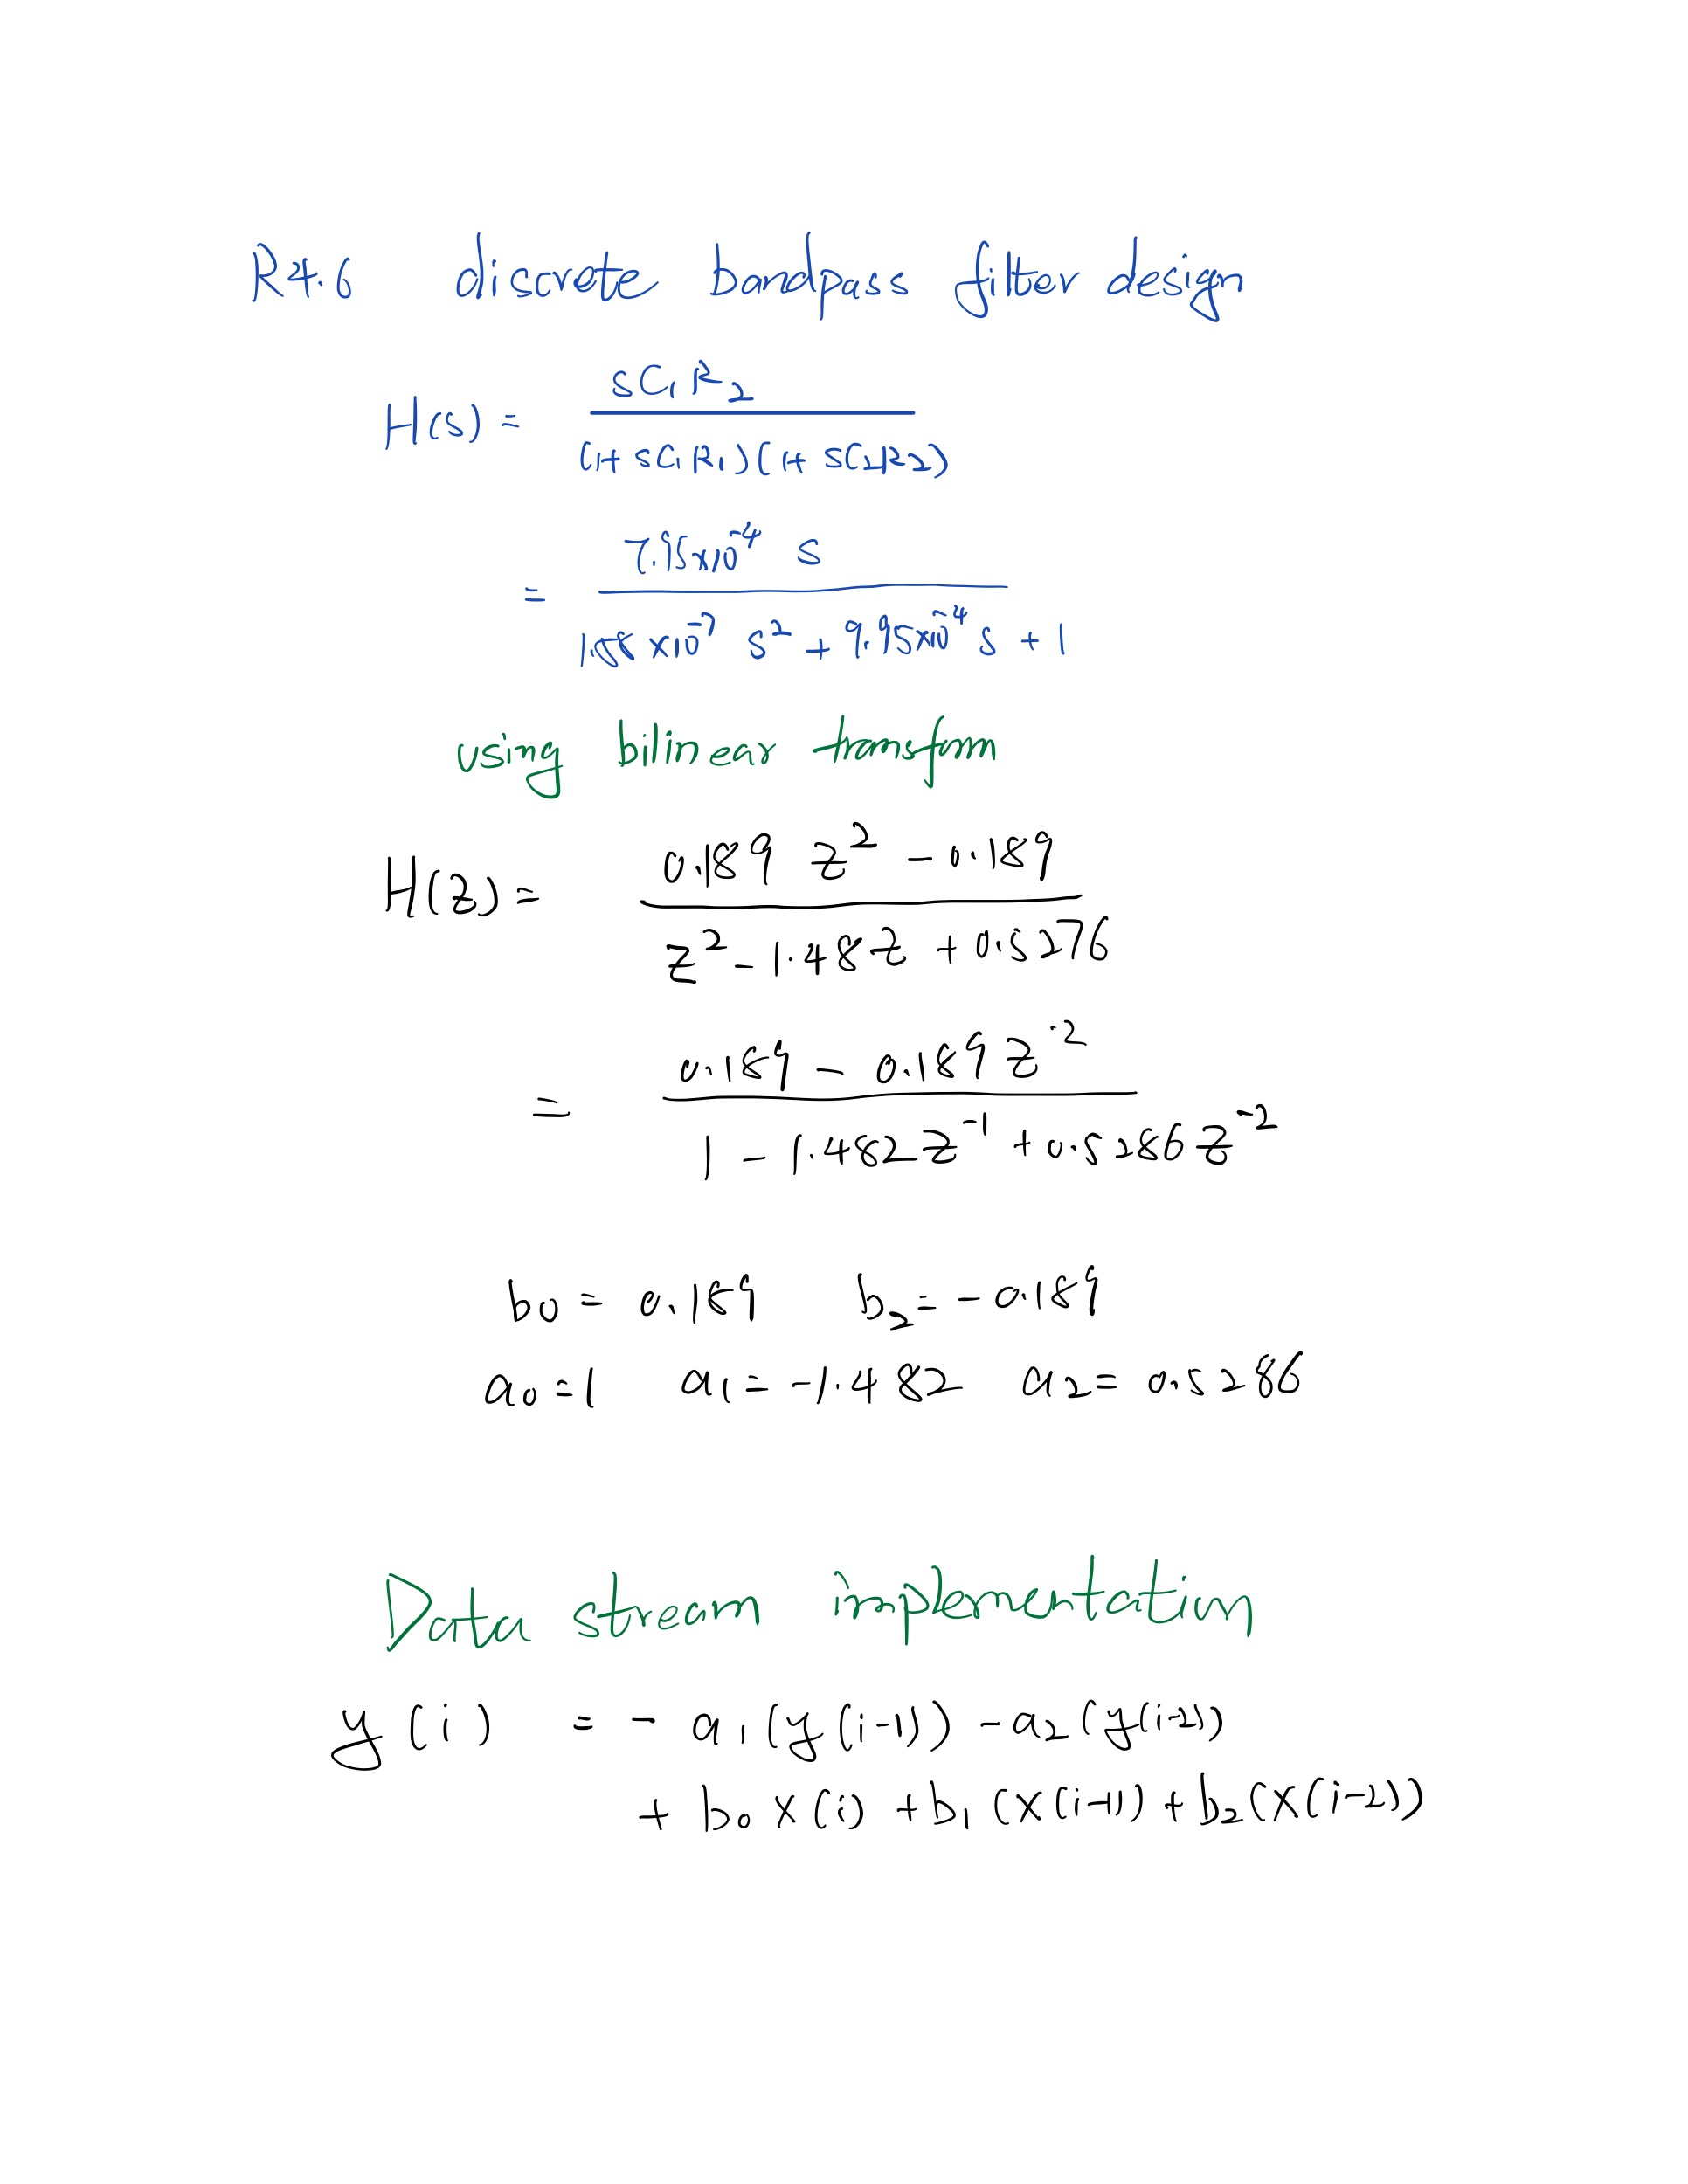 R4.6 discrete bandpass filter design
H(s) = sC₁R₂ / (1+ sC₁R₁)(1+ sC₂R₂)
= 7.95x10⁻⁴ s / x10⁻⁷ s² + 9.95x10⁻⁴ s + 1
using bilinear transform
H(z) = 0.189 z² - 0.189 / z² - 1.48z + 0.5276
= 0.189 - 0.189 z⁻² / 1 - 1.482z⁻¹ + 0.5286z⁻²
b₀ = 0.189 b₂ = -0.189
a₀ = 1 a₁ = -1.482 a₂ = 0.5286
Data stream implementation
y(i) = - a₁(y(i-1)) - a₂(y(i-2))
+ b₀ x(i) + b₁(x(i-1)) + b₂(x(i-2))